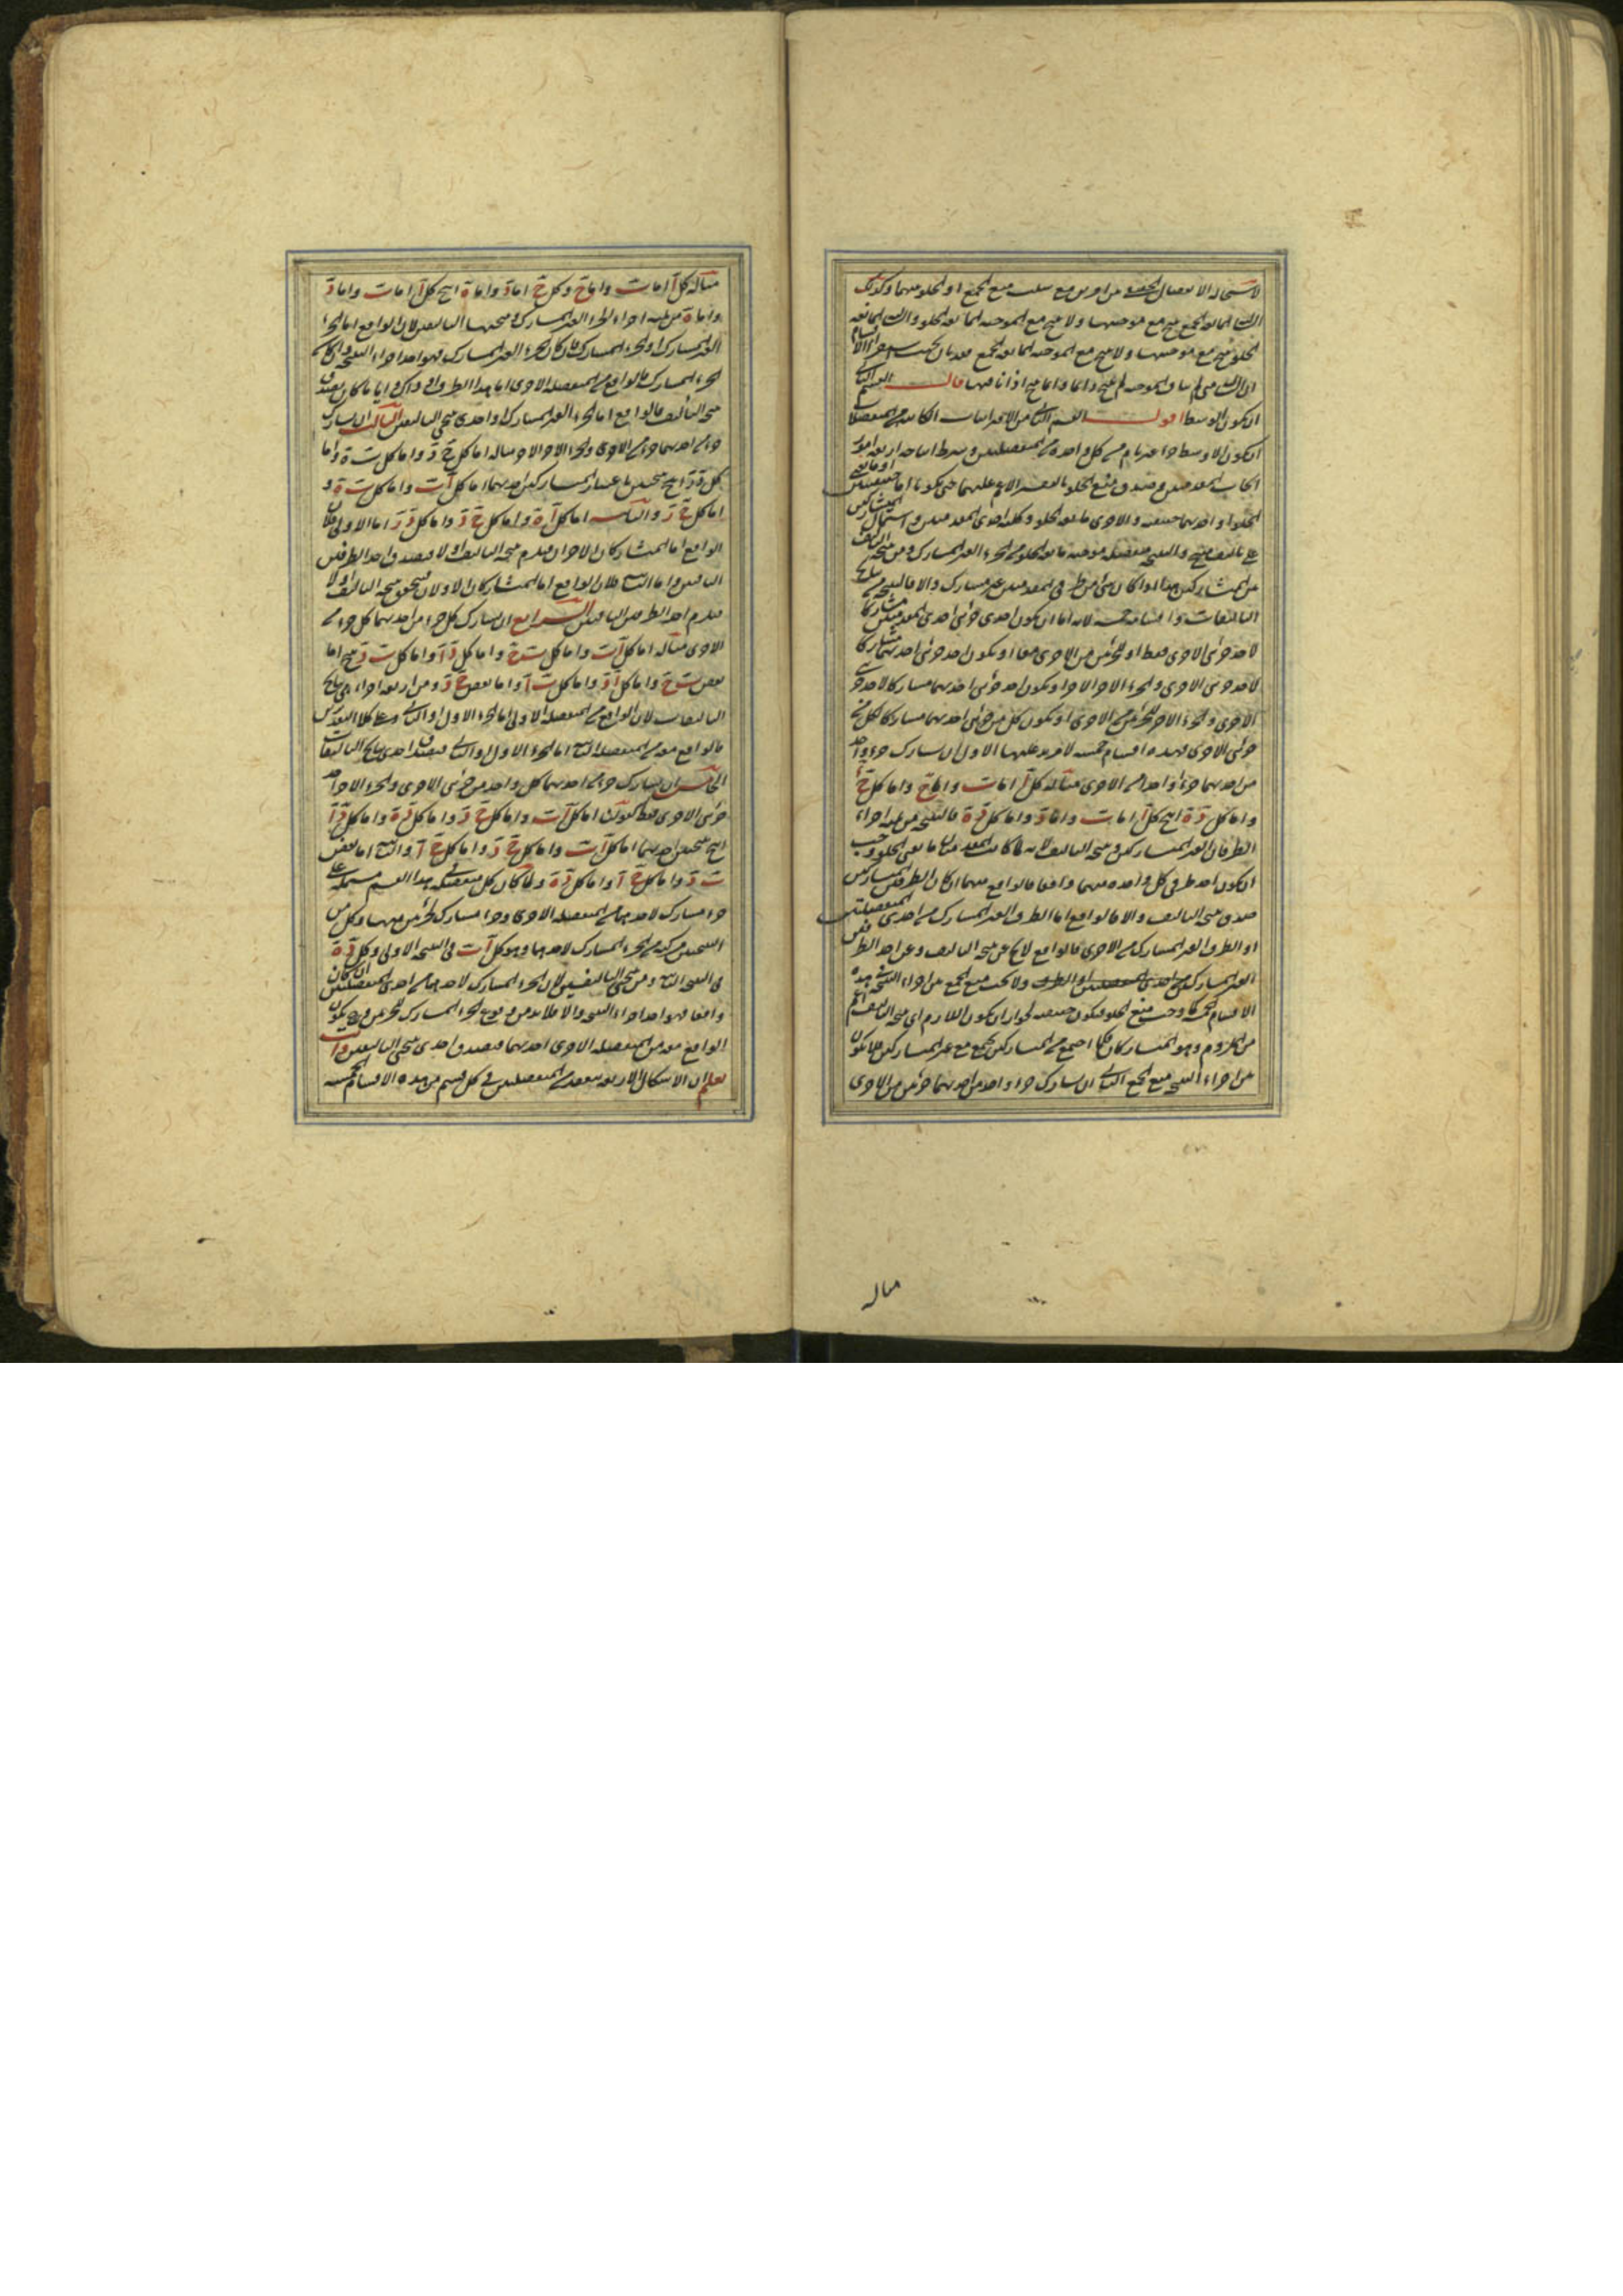 لاستحالة الانفصال الحقيقى من امرين مع سلب منع الجمع او الخلو منهما وكذلك
السالبة المانعة الجمع ينتج مع موجبتها ولا ينتج مع الموجبة المانعة الخلو والسالبة المانعة
الخلو ينتج مع موجبتها ولا ينتج مع الموجبة المانعة الجمع
قال القسم الثانى
ان يكون الاوسط اقول القسم الثانى من الاقترانيات الكائنة من المنفصلات
ان يكون الاوسط جزءا غير تام من كل واحدة من المنفصلتين وشرط انتاجه اربعة امور
ايجاب المقدمتين وصدق منع الخلو بالتفسير الاعم عليهما حتى يكونا اما حقيقيتين او مانعتى
الخلو او احديهما حقيقية والاخرى مانعة الخلو وكلية احدى المقدمتين واشتمال المتشاركين
على تاليف منتج والنتيجة منفصلة موجبة مانعة الخلو من الجزء الغير المشارك ومن نتيجة التاليف
من المتشاركين هذا اذا كان شى من طرفى المقدمتين غير مشارك والا فالنتيجة من نتايج
التاليفات واقسامه خمسة لانه اما ان يكون احدى جزئى احدى المقدمتين مشاركا
لاحد جزئى الاخرى فقط او للجزئين من الاخرى معا او يكون احد جزئى احديهما مشاركا
لاحد جزئى الاخرى والجزء الاخر للاخر او يكون احد جزئى احديهما مشاركا لاحد جزئى
الاخرى والجزء الاخر للجزئين من الاخرى او يكون كل من جزئى احديهما مشاركا لكل من
جزئى الاخرى فهذه اقسام خمسة لا مزيد عليها الاول ان يشارك جزء واحد
من احديهما جزءا واحدا من الاخرى مثاله كل آ اما ب واما ج واما كل ج
واما كل د ه انتج كل آ اما ب واما د واما كل د ه فالنتيجة من ثلثة اجزاء
الطرفان الغير المتشاركين ونتيجة التاليف لانه لما كانت المقدمتان مانعتى الخلو وجب
ان يكون احد طرفى كل واحدة منهما واقعا فالواقع منهما ان كان الطرفين المتشاركين
صدق نتيجة التاليف والا فالواقع اما الطرف الغير المشارك من احدى المنفصلتين
او الطرف الغير المشارك من الاخرى فالواقع لا يخ عن نتيجة التاليف وعن احد الطرفين
الغير المشاركين ولا يجب منع الجمع من اجزاء النتيجة فى هذه
الاقسام الخمسة كما وجب منع الخلو فيكون حقيقية لجواز ان يكون اللازم اى نتيجة التاليف اعم
من الملزوم وهو المتشاركان فلما اجتمع من المشاركين يجتمع مع غير المشاركين فلا يكون
من اجزاء النتيجة منع الجمع الثانى ان يشارك جزء واحد من احديهما جزئين من الاخرى
مثاله
مثاله كل آ اما ب واما ج وكل ج اما د واما ه انتج كل آ اما ب واما د
واما ه من ثلثة اجزاء الجزء الغير المشارك ونتيجتى التاليفين لان الواقع اما الجزء
الغير المشارك او الجزء المشارك فان كان الجزء الغير المشارك فهو احد اجزاء النتيجة وان كان
الجزء المشارك فالواقع من المنفصلة الاخرى اما هذا الطرف او ذاك وايا ما كان يصدق
نتيجة التاليف فالواقع اما الجزء الغير المشارك او احدى نتيجتى التاليفين الثالث ان يشارك
جزء من احديهما جزءا من الاخرى والجزء الاخر الاخر مثاله اما كل ج د واما كل ب ه واما
كل د ز انتج نتيجتين باعتبار المتشاركين احديهما اما كل آ ب واما كل ب ه و
اما كل ج ز والثانية اما كل آ ه واما كل ج د واما كل د ز اما الاولى فلان
الواقع اما المتشاركان الاخران فيلزم نتيجة التاليف او لا فيصدق احد الطرفين
الباقيين واما الثانية فلان الواقع اما المتشاركان الاولان فتحقق نتيجة التاليف او لا
فيلزم احد الطرفين الباقيين الرابع ان يشارك كل جزء من احديهما كل جزء من
الاخرى مثاله اما كل آ ب واما كل ب ج واما كل د آ واما كل ب د ينتج اما
بعض ب ج واما كل آ د واما كل ب آ واما بعض ج د ومن اربعة اجزاء هى نتايج
التاليفات لان الواقع من المنفصلة الاولى اما الجزء الاول او الثانى وعلى كلا التقديرين
فالواقع معه من المنفصلة الثانية اما الجزء الاول او الثانى فيصدق احدى نتايج التاليفات
الخامس ان يشارك جزء من احديهما كل واحد من جزئى الاخرى والجزء الاخر احد
جزئى الاخرى فقط كقولنا اما كل آ ب واما كل ج د واما كل د ه واما كل د آ
انتج نتيجتين احديهما اما كل آ ب واما كل ج د واما كل ج آ والثانية اما بعض
ب د واما كل ج آ واما كل د ه ولما كان كل منفصلة هذا القسم مشتملة على
جزء مشارك لاحديهما من المنفصلة الاخرى وجزء مشارك لجزئين منها وكل من
النتيجتين مركبة من الجزء المشارك لاحدهما وهو كل آ ب فى النتيجة الاولى وكل د ه
فى النتيجة الثانية ومن نتيجتى التاليفين لان الجزء المشارك لاحدهما من احدى المنفصلتين ان كان
واقعا فهو احد اجزاء النتيجة والا فلا بد من وقوع الجزء المشارك للجزئين وح يكون
الواقع معه من المنفصلة الاخرى احديهما فيصدق احدى نتيجتى التاليفين وانت
تعلم ان الاشكال الاربعة ينعقد من المنفصلتين فى كل قسم من هذه الاقسام الخمسة